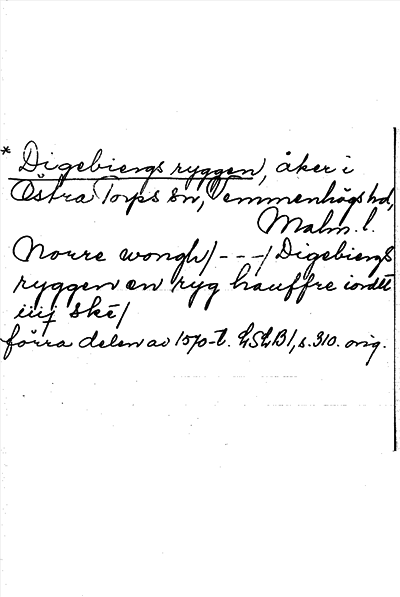 * Digebiergs ryggen, åker i
Östra Torps sn, Vemmenhögs hd,
Malm. l.
Norre wongh/ - - -/ Digebiergs
ryggen en ryg hauffre iordtt
iiij ske/
förra delen av 1570-t. LSLB1, s. 310. orig.